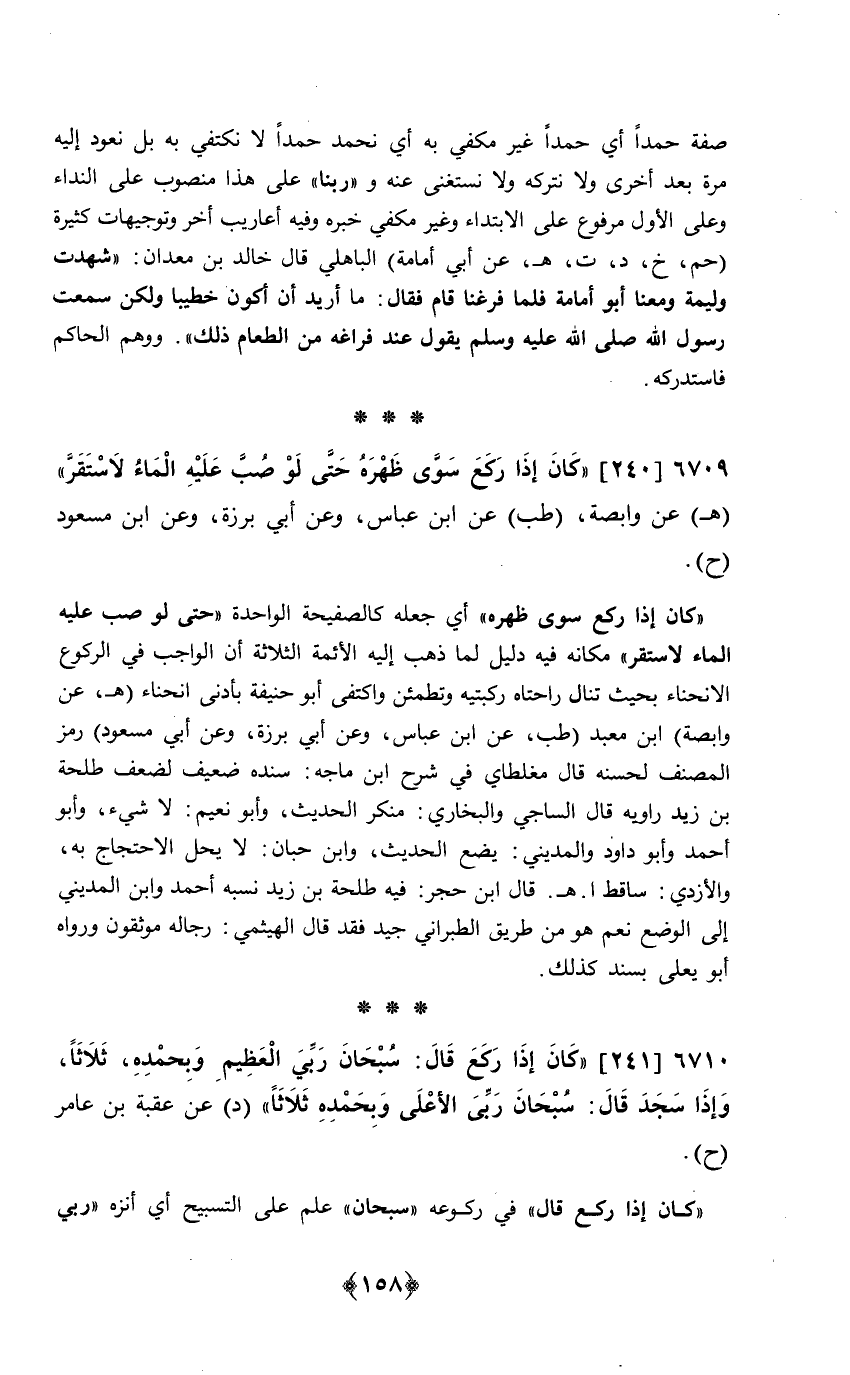 صفة حمداً أي حمداً غير مكفي به أي نحمد حمداً لا نكتفي به بل نعود إليه
مرة بعد أخرى ولا نتركه ولا نستغنى عنه و «ربنا» على هذا منصوب على النداء
وعلى الأول مرفوع على الابتداء وغير مكفي خبره وفيه أعاريب أخر وتوجيهات كثيرة
(حم، خ، د، ت، هـ، عن أبي أمامة) الباهلي قال خالد بن معدان: «شهدت
وليمة ومعنا أبو أمامة فلما فرغنا قام فقال: ما أريد أن أكون خطيبا ولكن سمعت
رسول الله صلى الله عليه وسلم يقول عند فراغه من الطعام ذلك». ووهم الحاكم
فاستدركه.
* * *
٦٧٠٩ [٢٤٠] «كَانَ إِذَا رَكَعَ سَوَّى ظَهْرَهُ حَتَّى لَوْ صُبَّ عَلَيْهِ الْمَاءُ لَاسْتَقَرَّ»
(هـ) عن وابصة، (طب) عن ابن عباس، وعن أبي برزة، وعن ابن مسعود
(ح).
«كان إذا ركع سوى ظهره» أي جعله كالصفيحة الواحدة «حتى لو صب عليه
الماء لاستقر» مكانه فيه دليل لما ذهب إليه الأئمة الثلاثة أن الواجب في الركوع
الانحناء بحيث تنال راحتاه ركبتيه وتطمئن واكتفى أبو حنيفة بأدنى انحناء (هـ، عن
وابصة) ابن معبد (طب، عن ابن عباس، وعن أبي برزة، وعن أبي مسعود) رمز
المصنف لحسنه قال مغلطاي في شرح ابن ماجه: سنده ضعيف لضعف طلحة
بن زيد راويه قال الساجي والبخاري: منكر الحديث، وأبو نعيم: لا شيء، وأبو
أحمد وأبو داود والمديني: يضع الحديث، وابن حبان: لا يحل الاحتجاج به،
والأزدي: ساقط ا.هـ. قال ابن حجر: فيه طلحة بن زيد نسبه أحمد وابن المديني
إلى الوضع نعم هو من طريق الطبراني جيد فقد قال الهيثمي: رجاله موثقون ورواه
أبو يعلى بسند كذلك.
* * *
٦٧١٠ [٢٤١] «كَانَ إِذَا رَكَعَ قَالَ: سُبْحَانَ رَبِّيَ الْعَظِيمِ وَبِحَمْدِهِ، ثَلَاثَاً،
وَإِذَا سَجَدَ قَالَ: سُبْحَانَ رَبِّيَ الأَعْلَى وَبِحَمْدِهِ ثَلَاثَاً» (د) عن عقبة بن عامر
(ح).
«كـان إذا ركـع قال» في ركـوعه «سبحان» علم على التسبيح أي أنزه «ربي
﴿١٥٨﴾